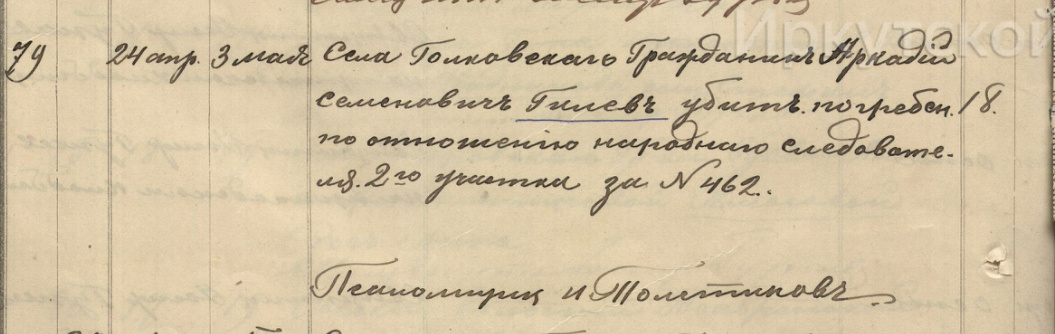 79 24 апр. 3 мая Села Голковскаго Гражданинъ Аркадій
Семеновичъ Гилевъ убитъ. погребен. 18.
по отношенію народнаго следовате-
ля. 2го участка за № 462.
Псаломщик И Толстиковъ
Иркутской